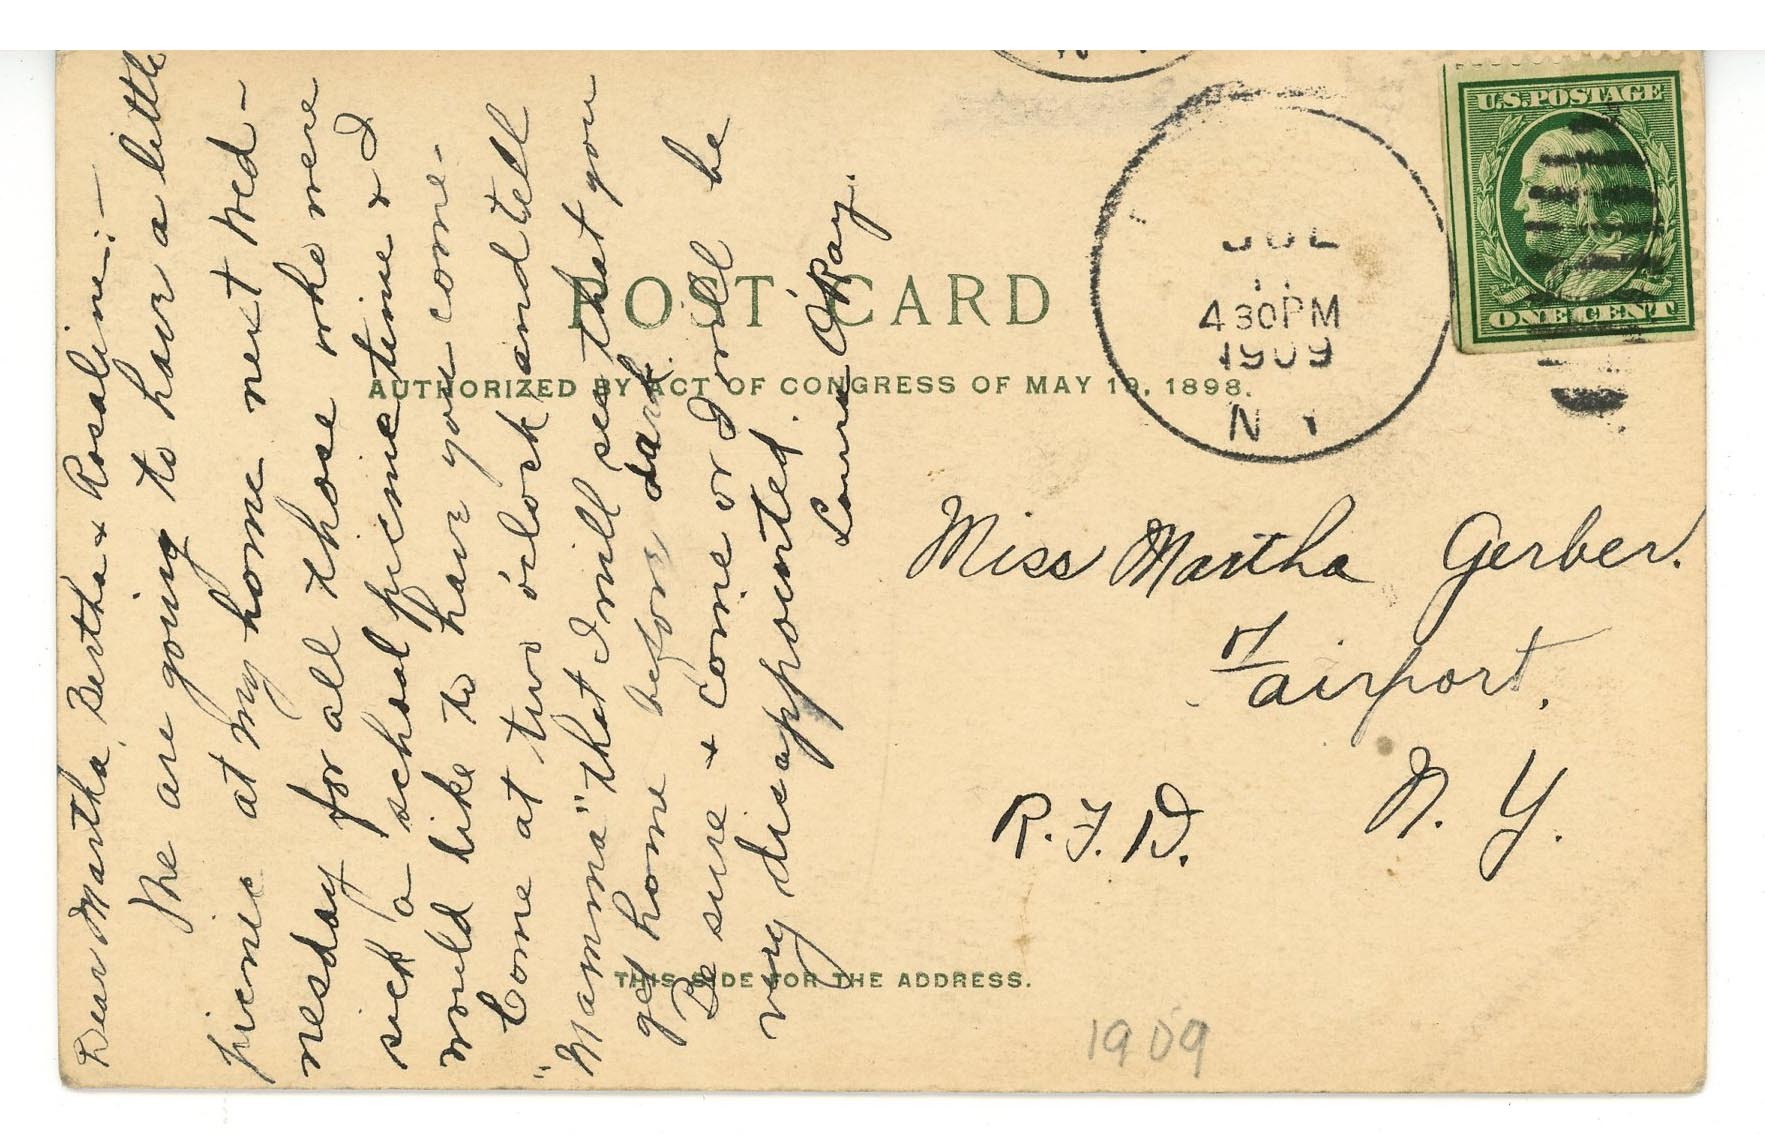 Dear Martha, Bertha & Rosaline:—
We are going to have a little
picnic at my home next Wed-
nesday for all those who were
sick a school picnic time & I
would like to have you come.
Come at two o'clock and tell
"Mamma" that I will see that you
get home before dark.
Be sure & come or I will be
very disappointed.
Laura A Ray.
POST CARD
AUTHORIZED BY ACT OF CONGRESS OF MAY 19, 1898.
THIS SIDE FOR THE ADDRESS.
JUL
11
4 30PM
1909
N Y
U.S. POSTAGE
ONE CENT
Miss Martha Gerber.
Fairport.
N. Y.
R.F.D.
1909